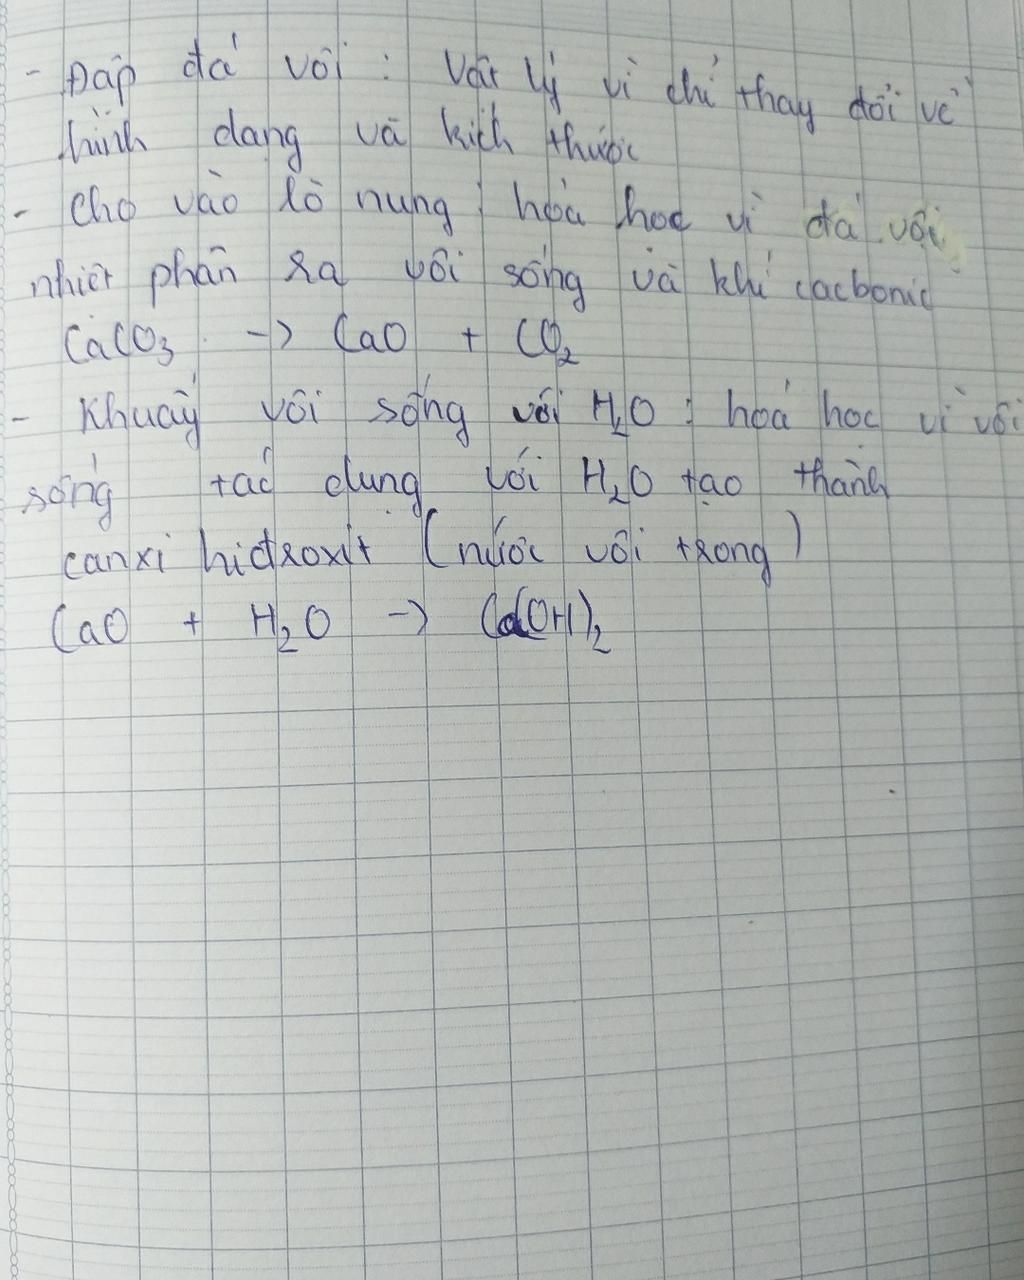 - Đập đá vôi : Vật lý vì chỉ thay đổi về
hình dạng và kích thước
- Cho vào lò nung : hóa học vì đá vôi
nhiệt phân ra vôi sống và khí cacbonic
CaCO₃ -> CaO + CO₂
- Khuấy vôi sống với H₂O : hoá học vì vôi
sống tác dụng với H₂O tạo thành
canxi hiđroxit (nước vôi trong)
CaO + H₂O -> Ca(OH)₂